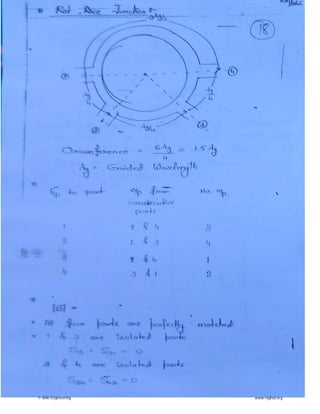 * Rat Race Junction :-
18
3λg/4
①
④
λg/4
λg/4
②
③
λg/4
Circumference = 6λg/4 = 1.5λg
λg = Guided Wavelength
i/p to port o/p from No o/p
consecutive
ports
1 2 & 4 3
2 1 & 3 4
3 2 & 4 1
4 3 & 1 2
[S] =
* All four ports are perfectly matched.
* 1 & 3 are isolated ports
∴ S13 = S31 = 0
2 & 4 are isolated ports
S24 = S42 = 0